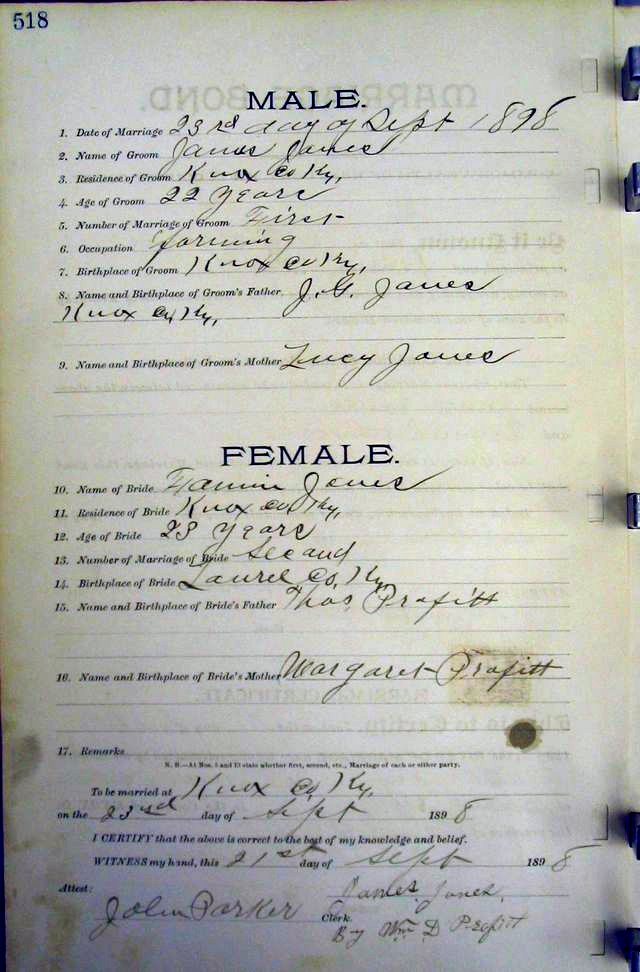 518
MALE.
1. Date of Marriage 23rd day of Sept 1898
2. Name of Groom James Jones
3. Residence of Groom Knox Co Ky,
4. Age of Groom 22 Years
5. Number of Marriage of Groom First
6. Occupation farming
7. Birthplace of Groom Knox Co Ky,
8. Name and Birthplace of Groom's Father J. G. Jones
Knox Co, Ky,
9. Name and Birthplace of Groom's Mother Lucy Jones
FEMALE.
10. Name of Bride Jones
11. Residence of Bride Knox Co, Ky,
12. Age of Bride 23 Years
13. Number of Marriage of Bride Second
14. Birthplace of Bride Laurel Co, Ky
15. Name and Birthplace of Bride's Father Thos, Profitt
16. Name and Birthplace of Bride's Mother Margaret Profitt
17. Remarks
N. B.—At Nos. 5 and 13 state whether first, second, etc., Marriage of each or either party.
To be married at Knox Co, Ky,
on the 23rd day of Sept 1898
I CERTIFY that the above is correct to the best of my knowledge and belief.
WITNESS my hand, this 21st day of Sept 1898
Attest: James Jones,
John Parker Clerk.
By Wm D Profitt